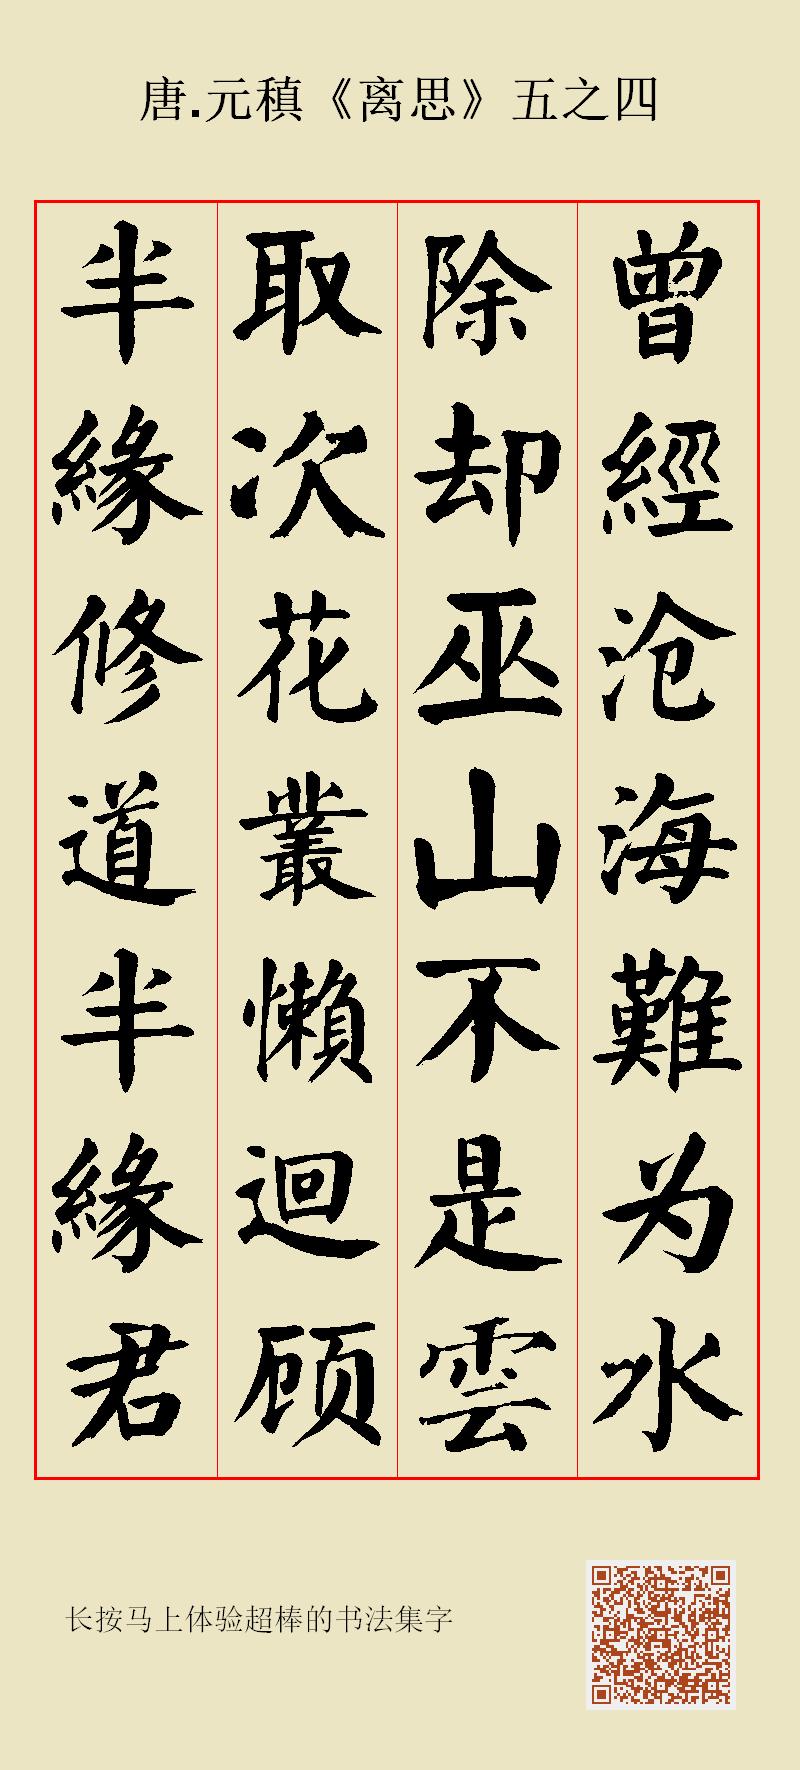 唐.元稹《离思》五之四
曾經沧海難为水
除却巫山不是雲
取次花叢懶迴顾
半緣修道半緣君
长按马上体验超棒的书法集字